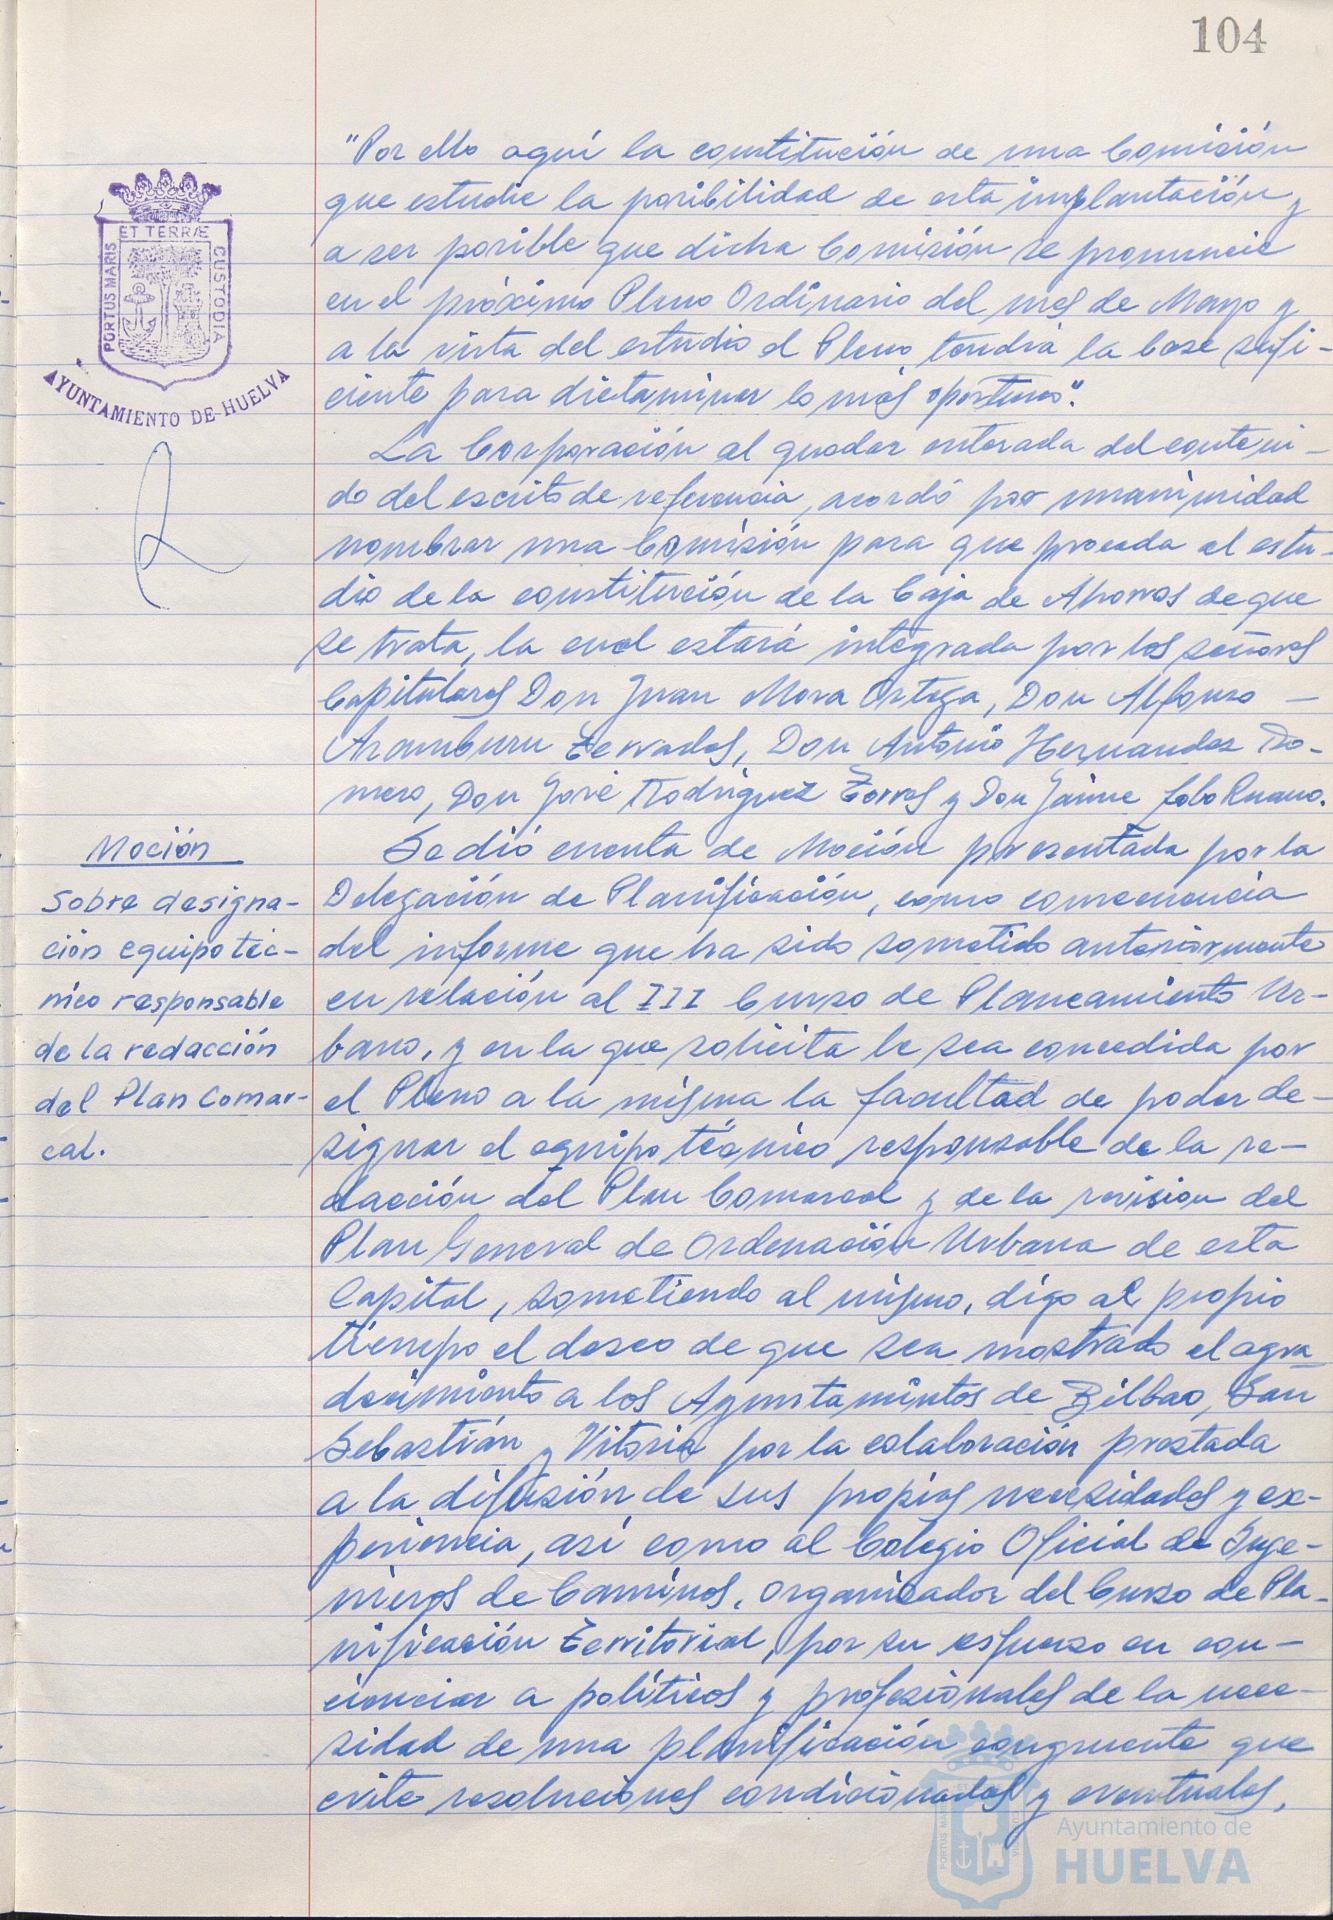 104
"Por ello aquí la constitución de una Comisión
que estudie la posibilidad de esta implantación y
a ser posible que dicha Comisión se pronuncie
en el próximo Pleno Ordinario del mes de Mayo y
a la vista del estudio el Pleno tendrá la base sufi-
ciente para dictaminar lo más oportuno".
La Corporación al quedar enterada del conteni-
do del escrito de referencia, acordó por unanimidad
nombrar una Comisión para que proceda al estu-
dio de la constitución de la Caja de Ahorros de que
se trata, la cual estará integrada por los señores
Capitulares Don Juan Mora Ortega, Don Alfonso -
Aramburu Terrades, Don Antonio Hernandez Ro-
mero, Don José Rodríguez Torres y Don Jaime Lobo Ruano.
Se dió cuenta de Moción presentada por la
Delegación de Planificación, como consecuencia
del informe que ha sido sometido anteriormente
en relación al III Curso de Planeamiento Ur-
bano, y en la que solicita le sea concedida por
el Pleno a la misma la facultad de poder de-
signar el equipo técnico responsable de la re-
dacción del Plan Comarcal y de la revision del
Plan General de Ordenación Urbana de esta
Capital, sometiendo al mismo, digo al propio
tiempo el deseo de que sea mostrado el agra
decimiento a los Ayuntamintos de Bilbao, San
Sebastián y Vitoria por la colaboración prestada
a la difusión de sus propias necesidades y ex-
periencia, así como al Colegio Oficial de Inge-
nieros de Caminos, organizador del Curso de Pla-
nificación Territorial, por su esfuerzo en con-
cienciar a políticos y profesionales de la nece-
sidad de una planificación congruente que
evite resoluciones condicionadas y eventuales,
Moción
Sobre designa-
ción equipo téc-
nico responsable
de la redacción
del Plan Comar-
cal.
PORTUS MARIS
ET TERRÆ
CUSTODIA
AYUNTAMIENTO DE HUELVA
Ayuntamiento de
HUELVA